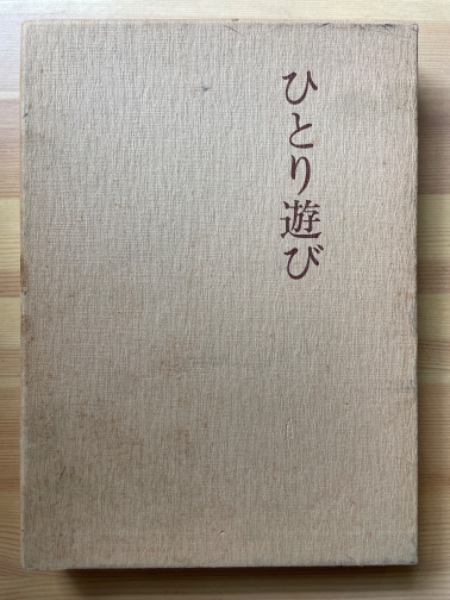 ひとり遊び